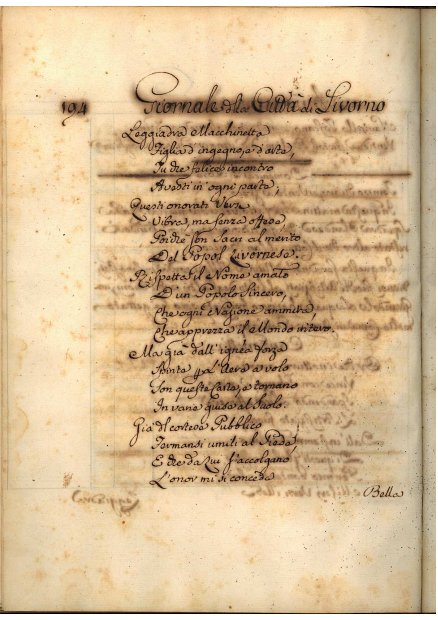 194 Giornale della Città di Livorno
Leggiadra Macchinetta
Figlia d'ingegno, e d'arte,
Tu che felice incontro
Avesti in ogni parte,
Questi onorati Versi
Vibra, ma senza offesa,
Poiche son Sacri al merito
Del Popol Livornese.
Rispetta il Nome amato
D'un Popolo Sincero,
Che ogni Nazione ammira,
Che apprezza il Mondo intero.
Ma già dall'ignea forza
Spinte per l'Aera a volo
Son queste Carte, e tornano
In vana guisa al Suolo.
Già del cortese Pubblico
Fermansi umili al Piede,
E che da Lui s'accolgano
L'onor mi si concede
Bella